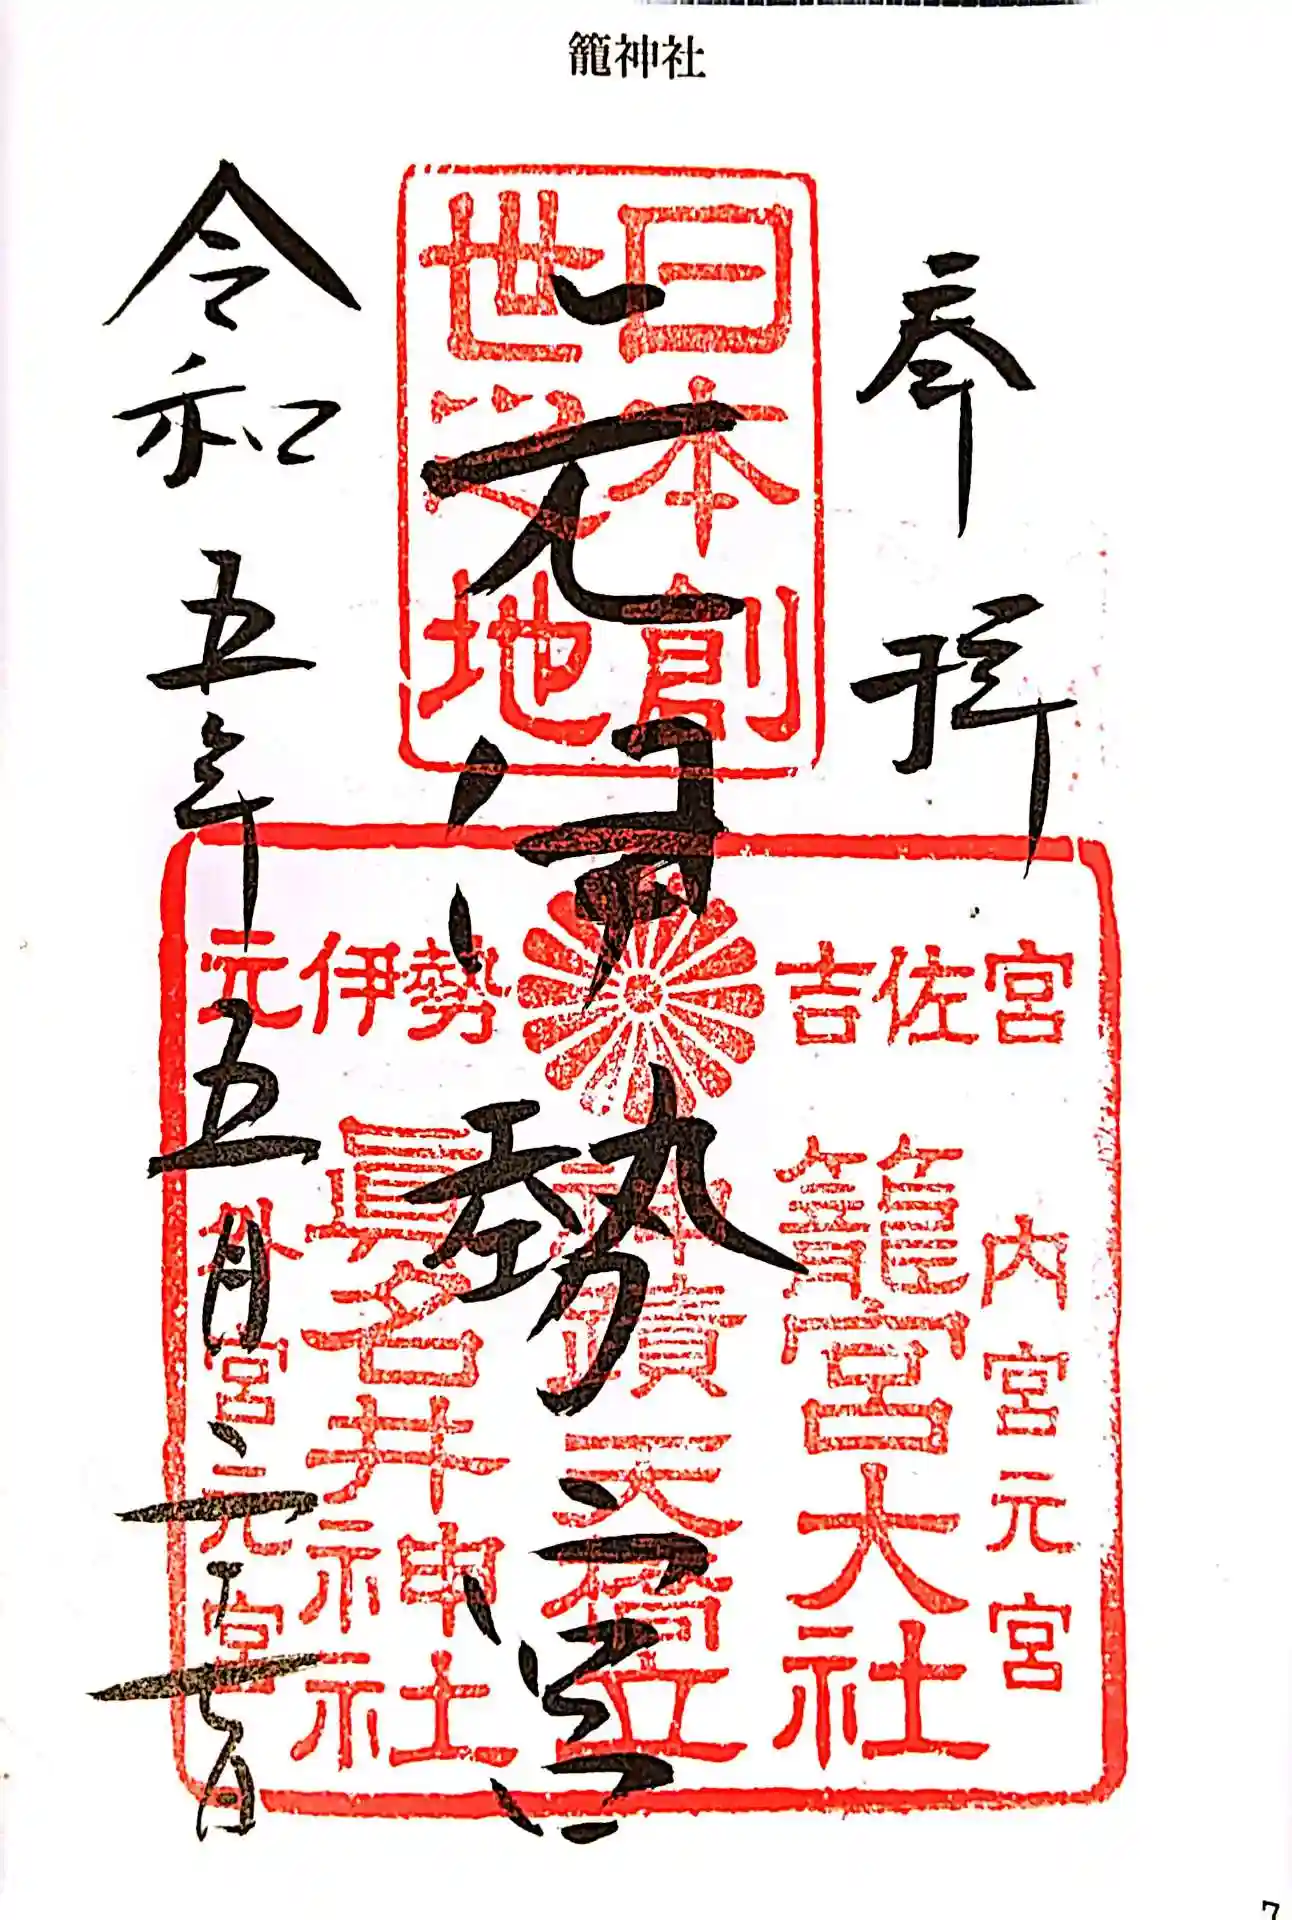 籠神社
奉拝
日本創
世之地
元伊勢宮
元伊勢 吉佐宮
内宮元宮
籠宮大社
神蹟天橋立
眞名井神社
外宮元宮
令和五年五月二十日
7